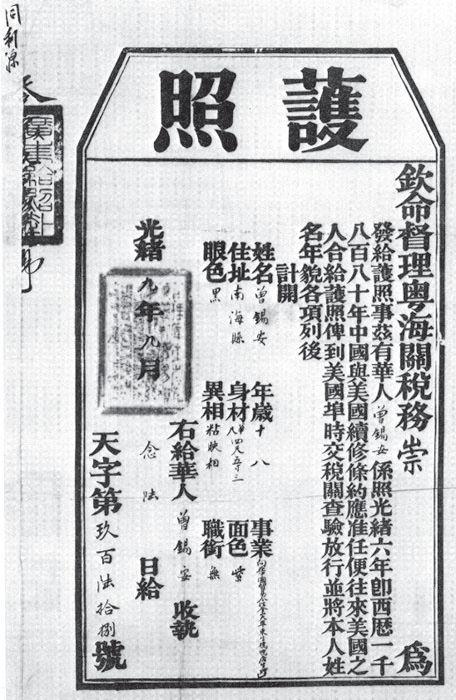 護照
欽命督理粵海關稅務 崇 為
發給護照事茲有華人曾錫安係照光緒六年卽西歷一千
八百八十年中國與美國續修條約應准任便往來美國之
人合給護照俾到美國埠時交稅關查驗放行並將本人姓
名年貌各項列後
計開
姓名曾錫安 年歲十八 事業
住址南海縣 身材 面色紫
眼色黑 異相粘映相 職銜無
右給華人曾錫安收執
光緒九年九月念陸日給
天字第玖百陆拾捌號
同利源